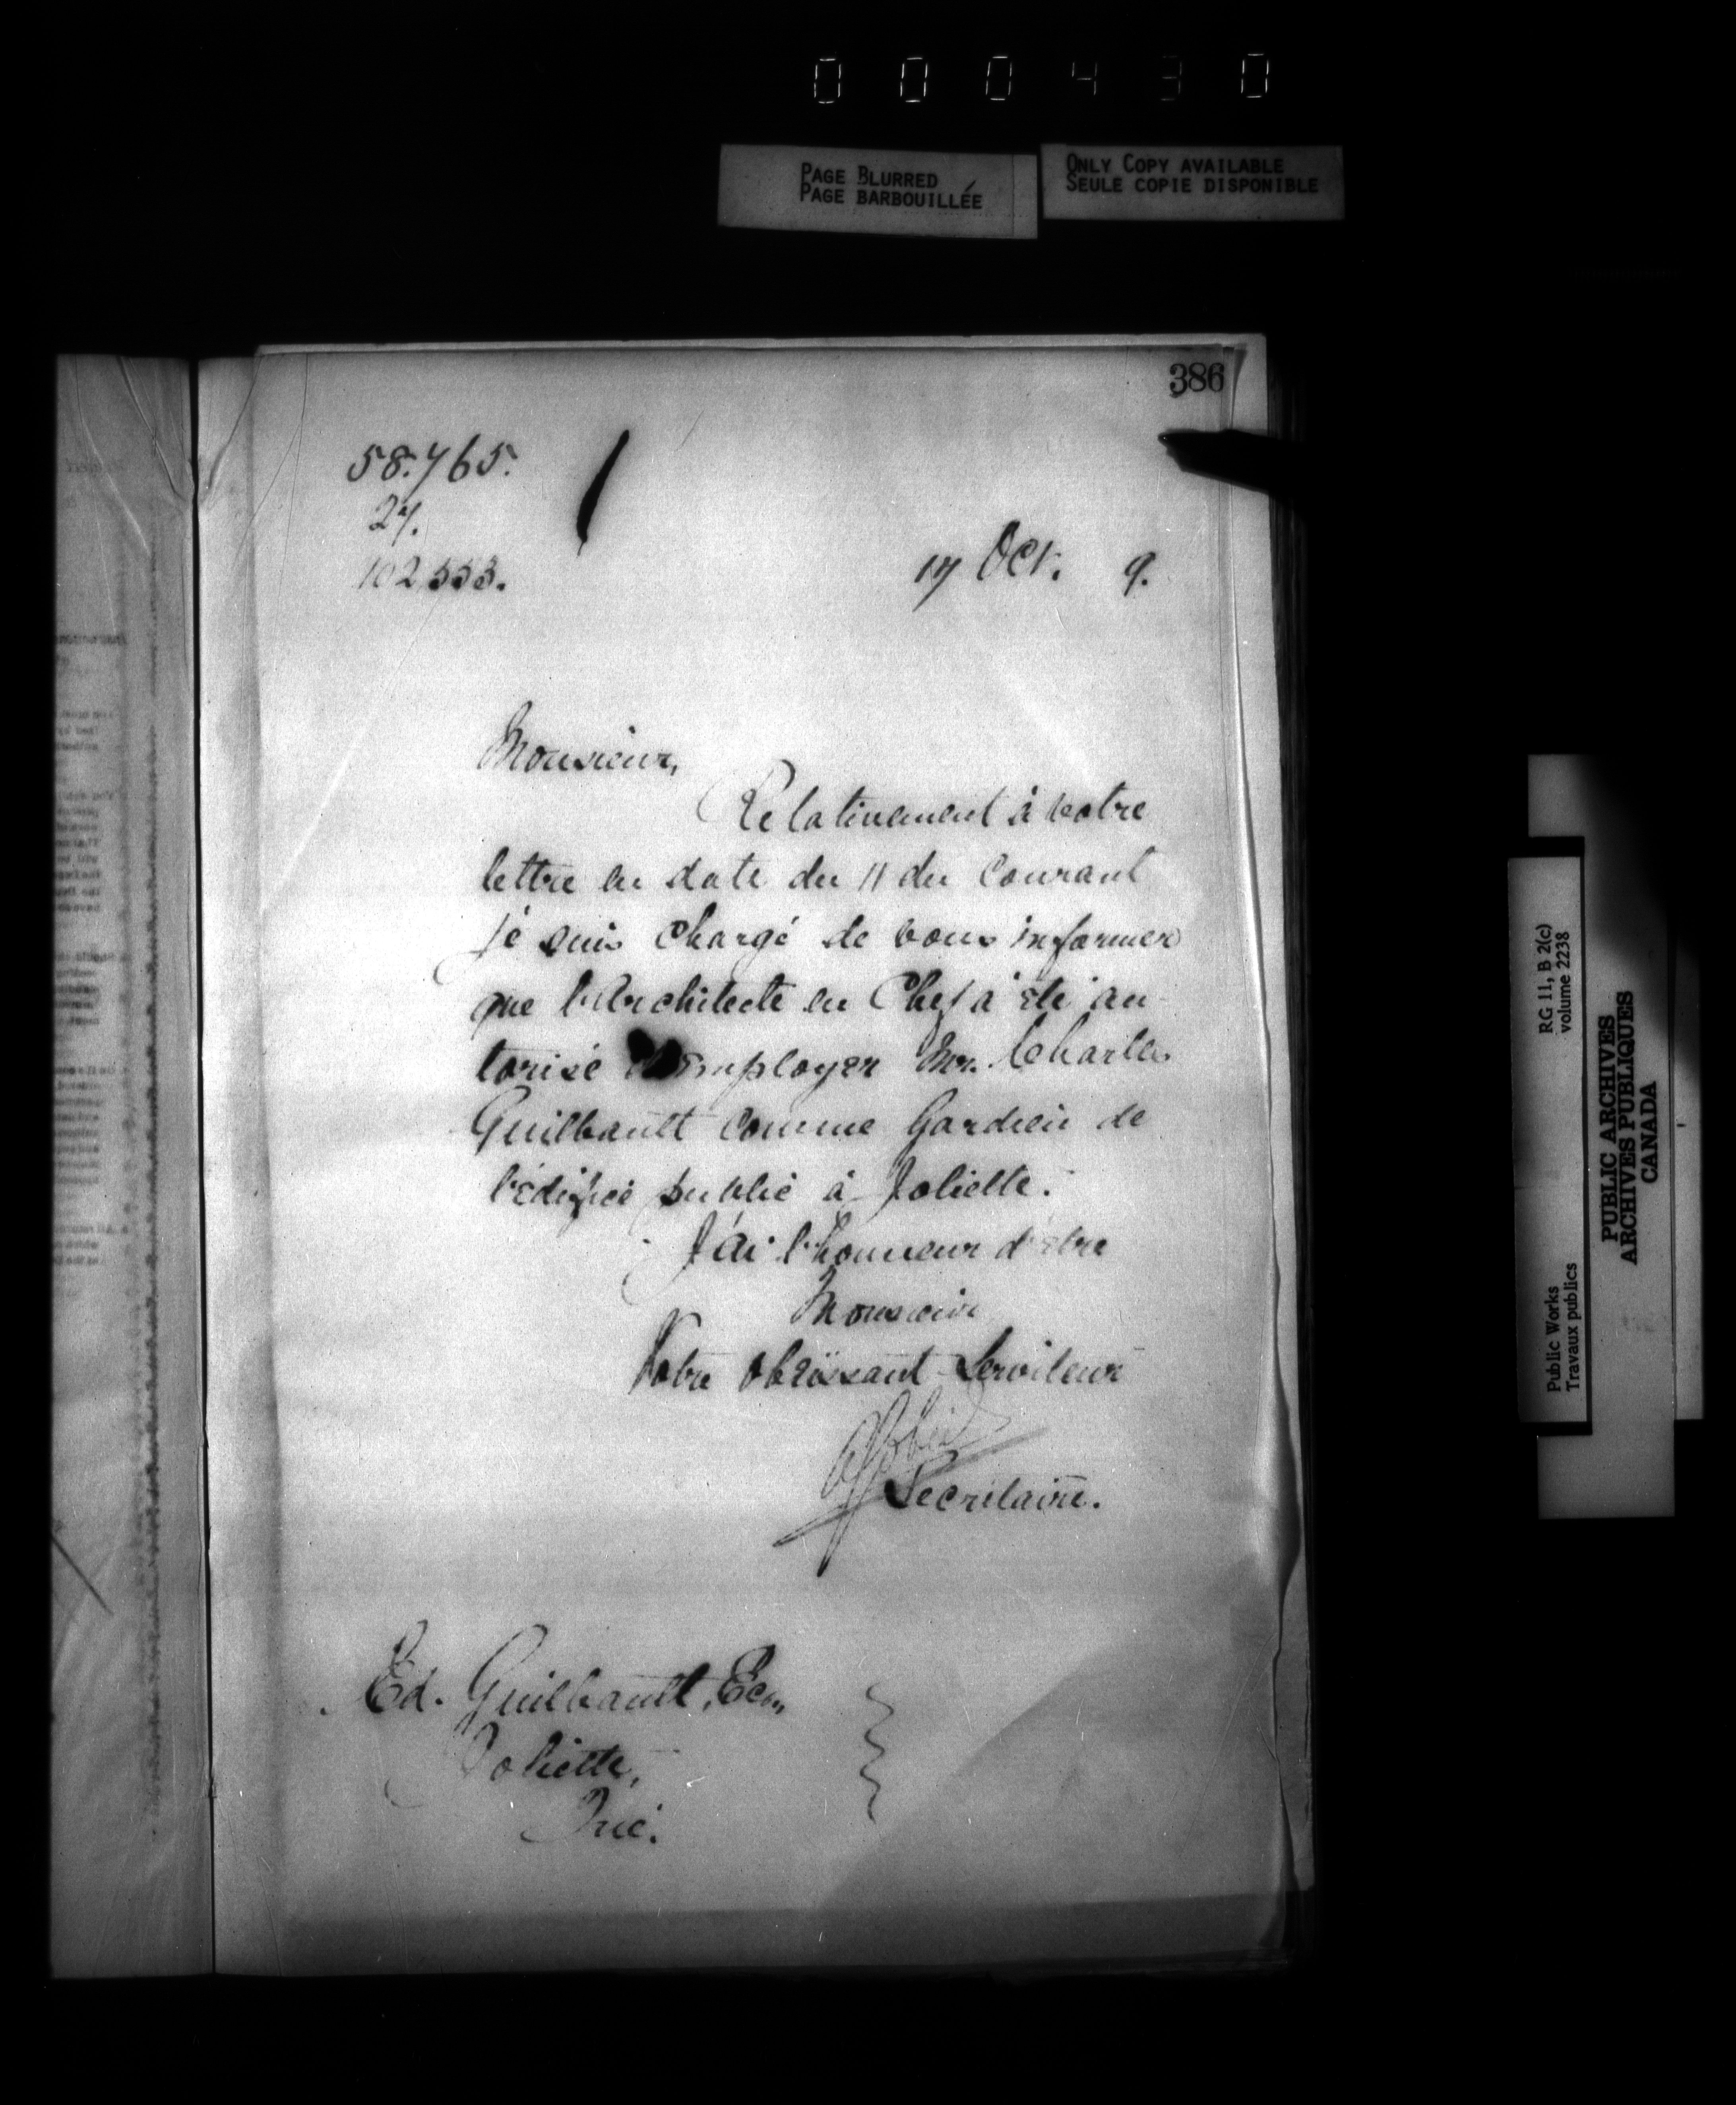 0 0 0 4 3 0
PAGE BLURRED
PAGE BARBOUILLÉE
ONLY COPY AVAILABLE
SEULE COPIE DISPONIBLE
386
58.765.
27.
102533.
17 Oct. 9.
Monsieur,
Relativement à votre
lettre en date du 11 du Courant
je suis chargé de vous informer
que l'Architecte en Chef a été au-
torisé employer Mr. Charles
Guilbault comme Gardien de
l'édifice public à Joliette.
J'ai l'honneur d'être
Monsieur
Votre obéissant Serviteur
Secrétaire.
Ed. Guilbault, Ecr.,
Joliette,
Qué.
RG 11, B 2(c)
volume 2238
Public Works
Travaux publics
PUBLIC ARCHIVES
ARCHIVES PUBLIQUES
CANADA